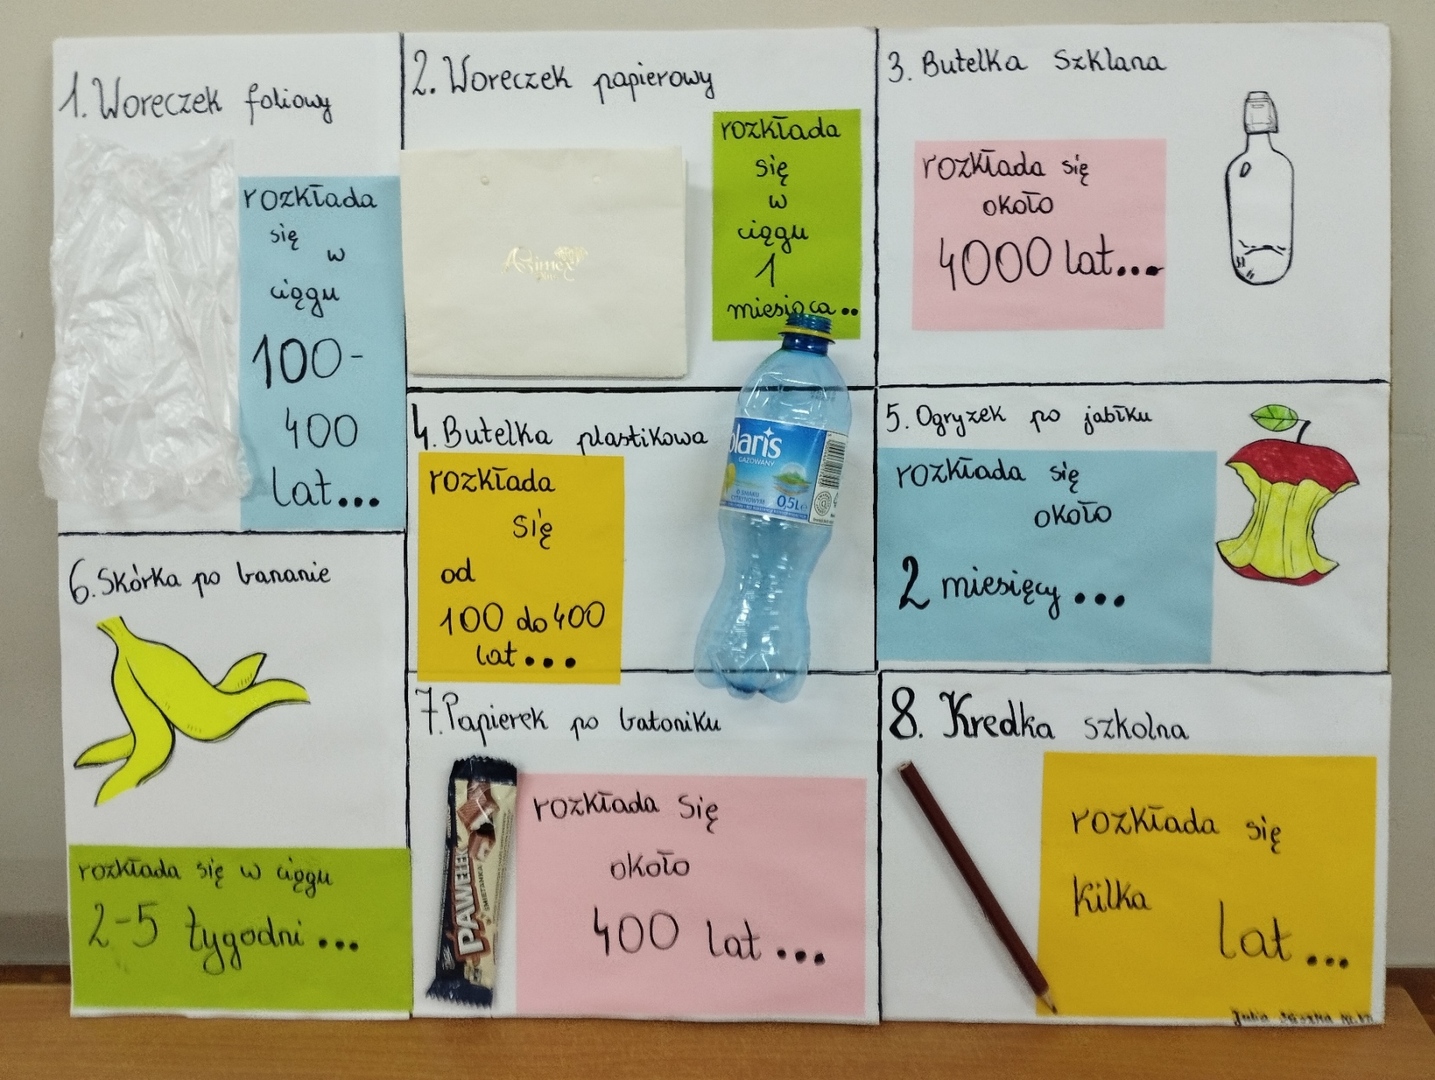 1. Woreczek foliowy
rozkłada
się w
ciągu
100-
400
lat...
2. Woreczek papierowy
rozkłada
się
w
ciągu
1
miesiąca..
3. Butelka Szklana
rozkłada się
około
4000 lat...
4. Butelka plastikowa
rozkłada
się
od
100 do 400
lat...
olaris
GAZOWANY
O SMAKU
CYTRYNOWYM
0,5L
5. Ogryzek po jabłku
rozkłada się
około
2 miesięcy...
6. Skórka po bananie
rozkłada się w ciągu
2-5 tygodni...
7. Papierek po batoniku
PAWEŁEK
ŚMIETANKA
rozkłada się
około
400 lat...
8. Kredka szkolna
rozkłada się
kilka
lat...
Julia